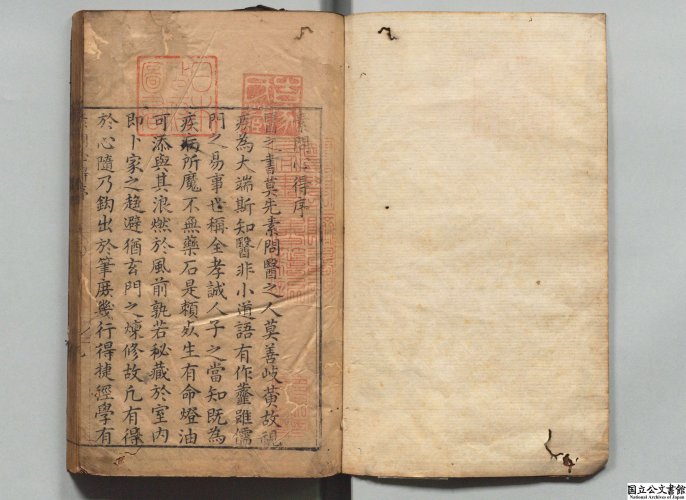 素問心得序
醫之書莫先素問醫之人莫善岐黃故視
病為大端斯知醫非小道語有作虀雖儒
門之易事世稱全孝誠人子之當知既為
疾病所魔不無藥石是頼夊生有命燈油
可添與其浪燃於風前孰若秘藏於室內
即卜家之趨避猶玄門之煉修故凢有得
於心隨乃鈎出於筆庶幾行得捷徑學有
国立公文書館
National Archives of Japan